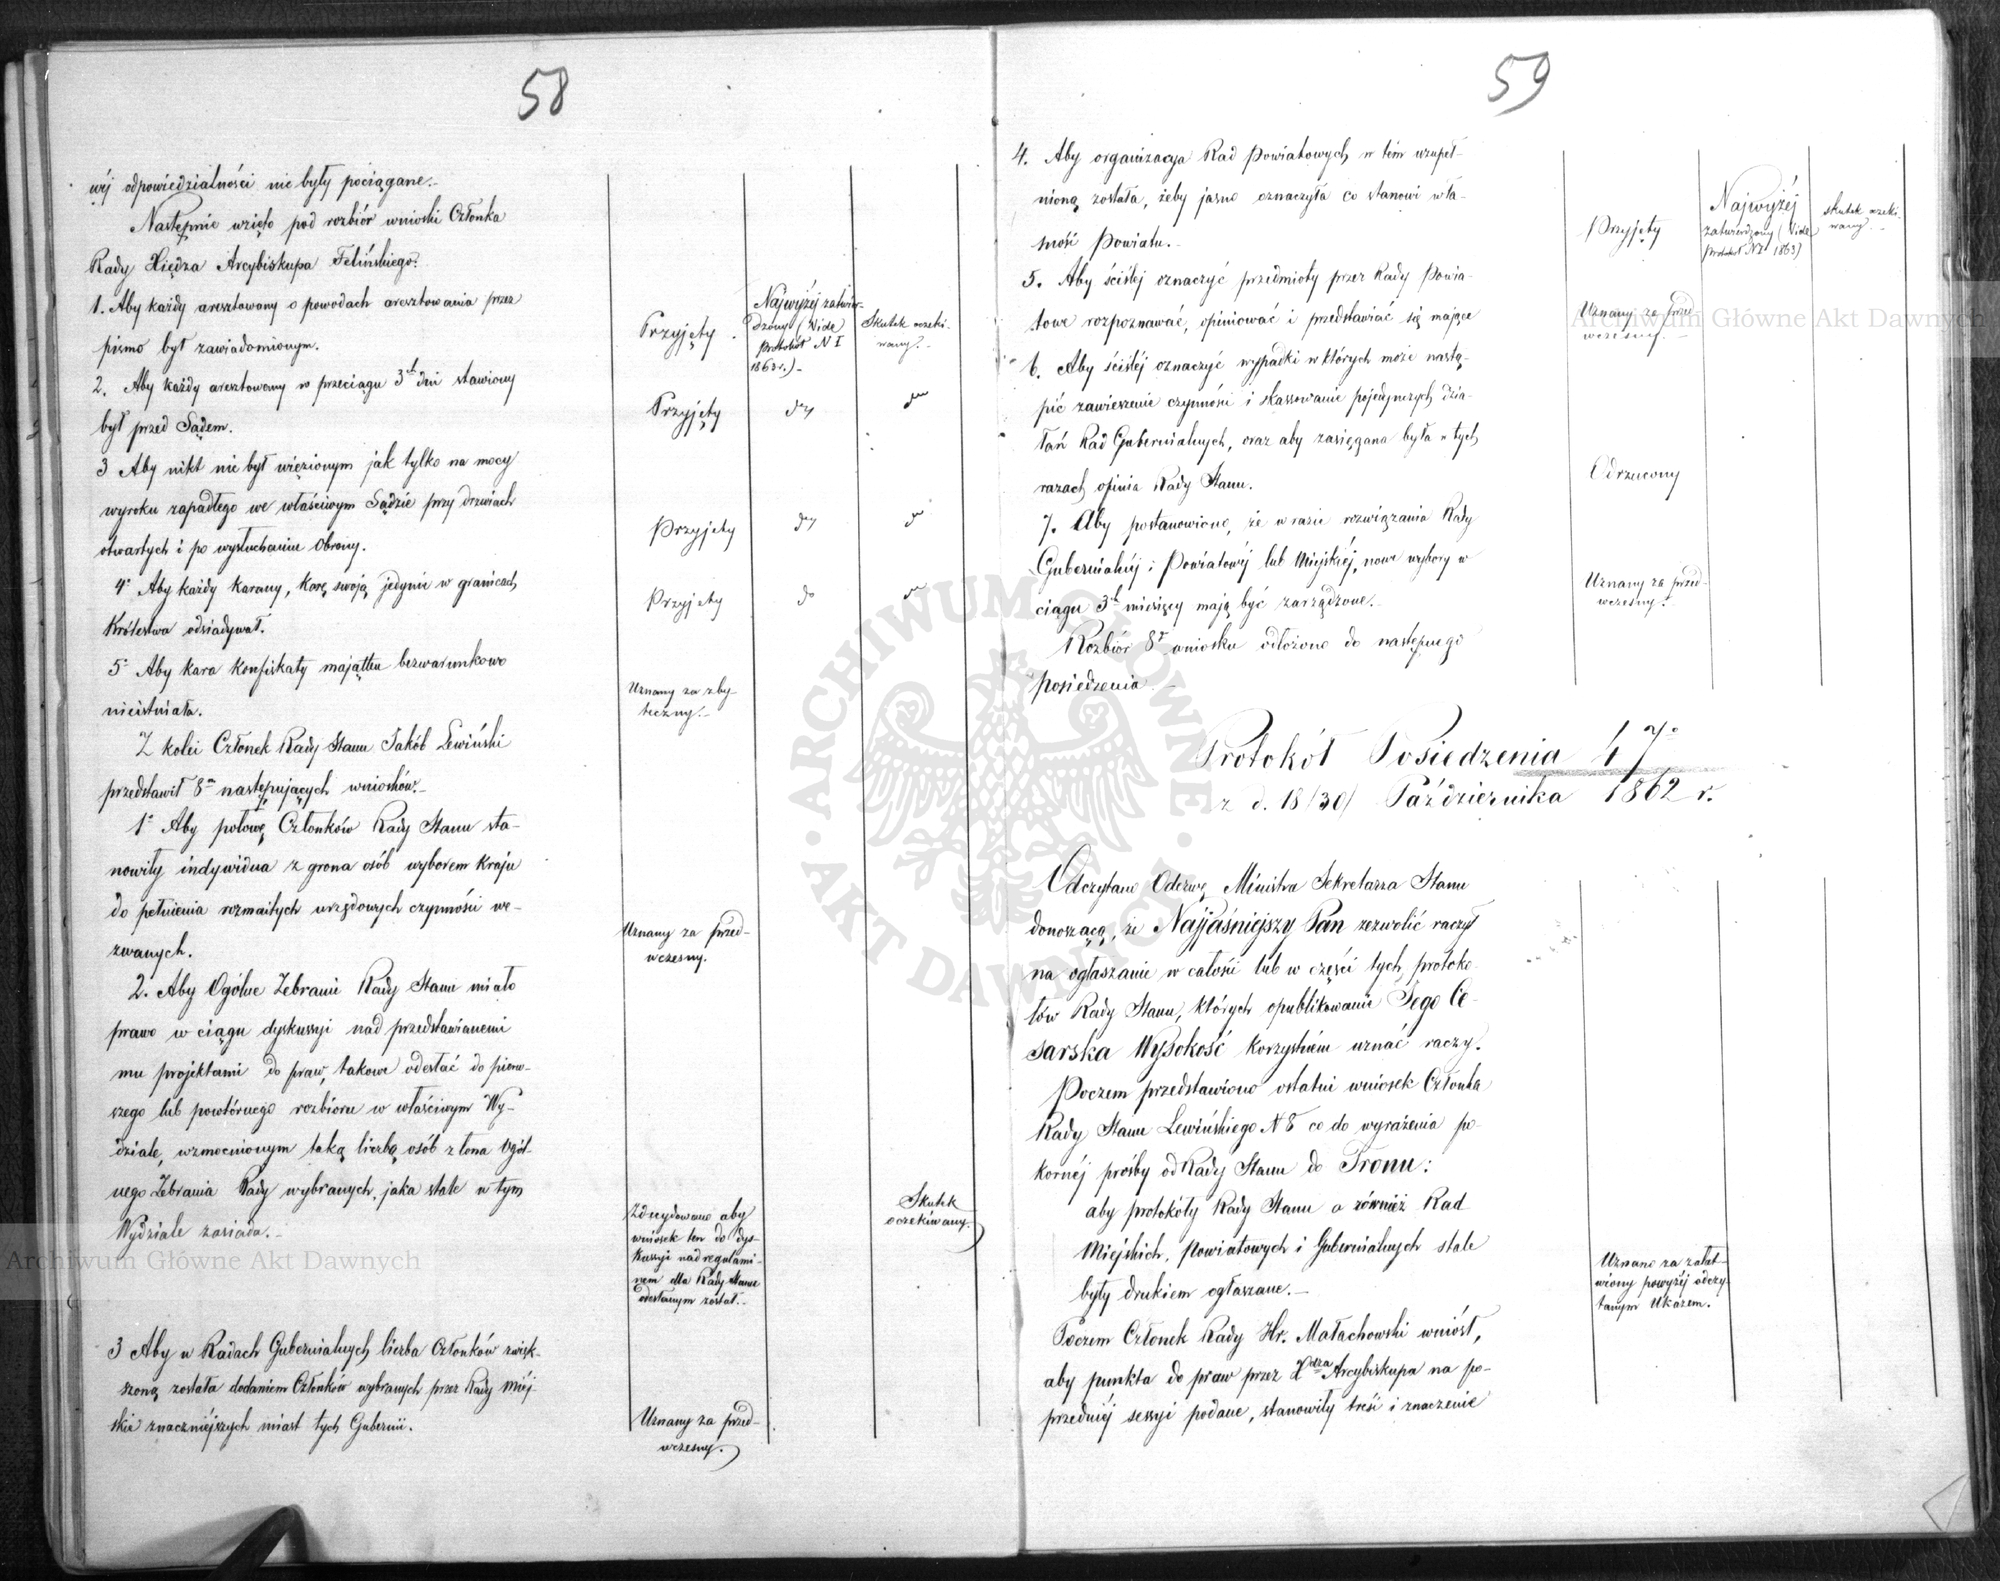 58
wéj odpowiedzialności nie były pociągane.
Następnie wzięto pod rozbiór wnioski Członka
Rady Xiędza Arcybiskupa Felińskiego:
1. Aby każdy aresztowany o powodach aresztowania przez
pismo był zawiadomionym.
Przyjęty.
Najwyżéj zatwier-
dzony (Vide
protokół N I
1863 r.) -
Skutek oczeki-
wany.
2. Aby każdy aresztowany w przeciągu 3ch dni stawiony
był przed Sądem.
Przyjęty
3 Aby nikt nie był więzionym jak tylko na mocy
wyroku zapadłego we właściwym Sądzie przy drzwiach
otwartych i po wysłuchaniu Obrony.
Przyjęty
4° Aby każdy karany, karę swoją jedynie w granicach
Królestwa odsiadywał.
Przyjęty
do
5° Aby kara konfiskaty majątku bezwarunkowo
nieistniała.
Uznany za zby-
teczny.
Z kolei Członek Rady Stanu Jakób Lewiński
przedstawił 8m następujących wniosków.
1° Aby połowę Członków Rady Stanu sta-
nowiły indywidua z grona osób wyborem Kraju
do pełnienia rozmaitych urzędowych czynności we-
zwanych.
Uznany za przed-
wczesny.
2. Aby Ogólne Zebranie Rady Stanu miało
prawo w ciągu dyskussyi nad przedstawianemi
mu projektami do praw, takowe odesłać do pierw-
szego lub powtórnego rozbioru w właściwym Wy-
dziale, wzmocnionym taką liczbą osób z łona Ogól-
nego Zebrania Rady wybranych, jaka stale w tym
Wydziale zasiada.
Zdecydowano aby
wniosek ten do dys-
kussyi nad regulami-
nem dla Rady Stanu
odesłanym został.
Skutek
oczekiwany.
3 Aby w Radach Gubernialnych liczba Członków zwięk-
szoną została dodaniem Członków wybranych przez Rady Miéj-
skie znaczniéjszych miast tych Gubernii.
Uznany za przed-
wczesny.
59
4. Aby organizacya Rad Powiatowych w tém uzupeł-
nioną została, żeby jasno oznaczyła co stanowi wła-
sność Powiatu.
Przyjęty
Najwyżéj
zatwierdzony (Vide
protokół N I 1863)
skutek oczeki-
wany.
5. Aby ściśléj oznaczyć przedmioty przez Rady Powia-
towe rozpoznawać, opiniować i przedstawiać się mające
Uznany za przed-
wczesny.
6. Aby ściśléj oznaczyć wypadki w których może nastą-
pić zawieszenie czynności i skassowanie pojedynczych dzia-
łań Rad Gubernialnych, oraz aby zasięgana była w tych
razach opinia Rady Stanu.
Odrzucony
7. Aby postanowiono, że w razie rozwiązania Rady
Gubernialnéj i Powiatowéj lub Miejskiéj, nowe wybory w
ciągu 3ch miesięcy mają być zarządzone.
Uznany za przed-
wczesny.
Rozbiór 8go wniosku odłożono do następnego
posiedzenia.
Protokół Posiedzenia 47go
z d. 18/30/ Października 1862 r.
Odczytano Odezwę Ministra Sekretarza Stanu
donoszącą, że Najjaśniejszy Pan zezwolić raczył
na ogłaszanie w całości lub w części tych protoko-
łów Rady Stanu, których opublikowanie Jego Ce-
sarska Wysokość korzystném uznać raczy.
Poczem przedstawiono ostatni wniosek Członka
Rady Stanu Lewińskiego N 8 co do wyrażenia po-
kornéj prośby od Rady Stanu do Tronu:
aby protokóły Rady Stanu a również Rad
Miejskich, Powiatowych i Gubernialnych stale
były drukiem ogłaszane.
Uznano za załat-
wiony powyżéj odczy-
tanym Ukazem.
Poczem Członek Rady Hr. Małachowski wniósł,
aby punkta do praw przez Xdza Arcybiskupa na po-
przedniéj sessyi podane, stanowiły treść i znaczenie
Archiwum Główne Akt Dawnych
Archiwum Główne Akt Dawnych
ARCHIWUM GŁÓWNE AKT DAWNYCH